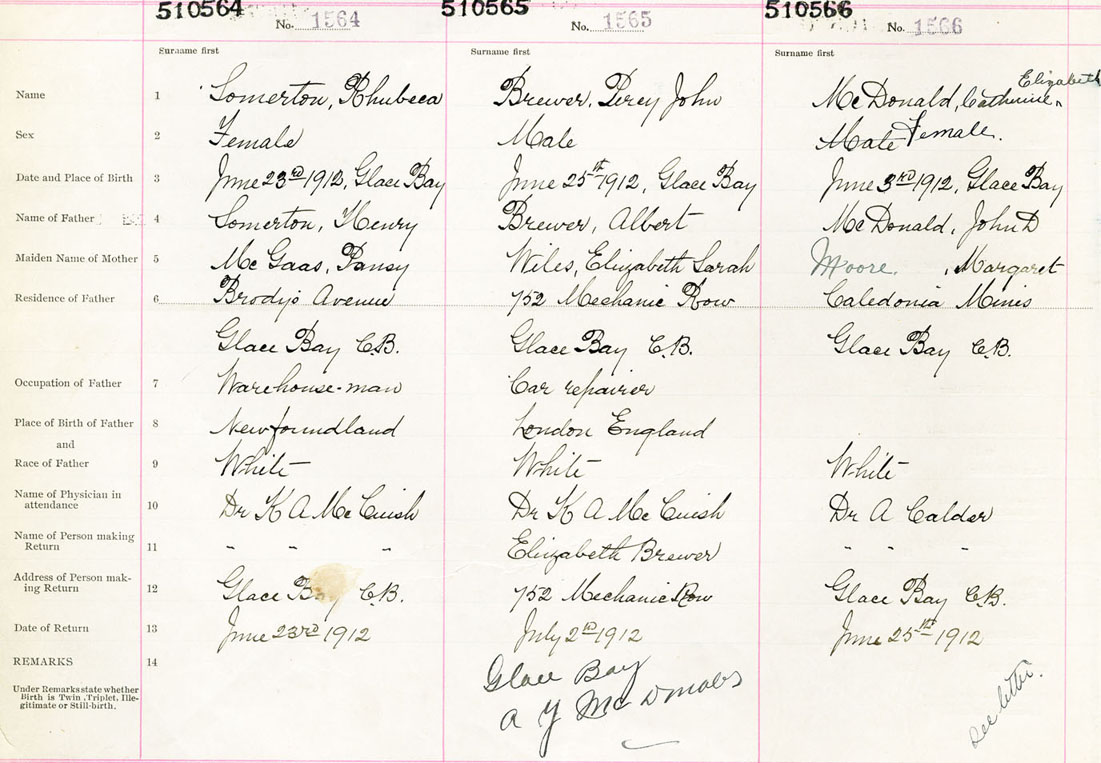 510564 510565 510566
No. 1564 No. 1565 No. 1566
Surname first Surname first Surname first
Name 1 Somerton, Rhubeca Brewer, Percy John McDonald, Catherine Elizabeth
Sex 2 Female Male Male Female.
Date and Place of Birth 3 June 23rd 1912, Glace Bay June 25th 1912, Glace Bay June 3rd 1912, Glace Bay
Name of Father 4 Somerton, Henry Brewer, Albert McDonald, John D
Maiden Name of Mother 5 Mc Gaas, Pansy Wiles, Elizabeth Sarah Moore. , Margaret
Residence of Father 6 Brodys Avenue 752 Mechanic Row Caledonia Mines
Glace Bay C.B. Glace Bay C.B. Glace Bay C.B.
Occupation of Father 7 Warehouse-man Car repairer
Place of Birth of Father 8 Newfoundland London England
and
Race of Father 9 White White White
Name of Physician in
attendance 10 Dr K A McCuish Dr K A McCuish Dr A Calder
Name of Person making
Return 11 " " " Elizabeth Brewer " " "
Address of Person mak-
ing Return 12 Glace Bay C.B. 752 Mechanic Row Glace Bay C.B.
Date of Return 13 June 23rd 1912 July 2nd 1912 June 25th 1912
REMARKS 14
Under Remarks state whether
Birth is Twin, Triplet, Ille-
gitimate or Still-birth.
Glace Bay
A Y McDonald
See letter.